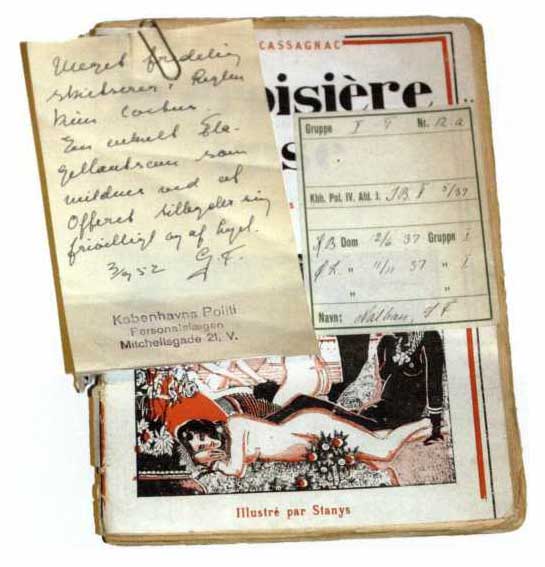 Meget fredelig
skildrer i Reglen
kun Coitus.
En enkelt Fla-
gellantscene som
mildnes ved at
Offeret tilbyder sig
frivilligt og af Lyst.
3/9 52 G.F.
Københavns Politi
Personalelægen
Mitchellsgade 21, V.
CASSAGNAC
oisière
se
Gruppe I 9 Nr. 12.a
Kbh. Pol. IV. Afd. J. JB I /37
JB Dom 12/6 37 Gruppe I
11/11 37 " I
" "
Navn: Nathan,
Illustré par Stanys